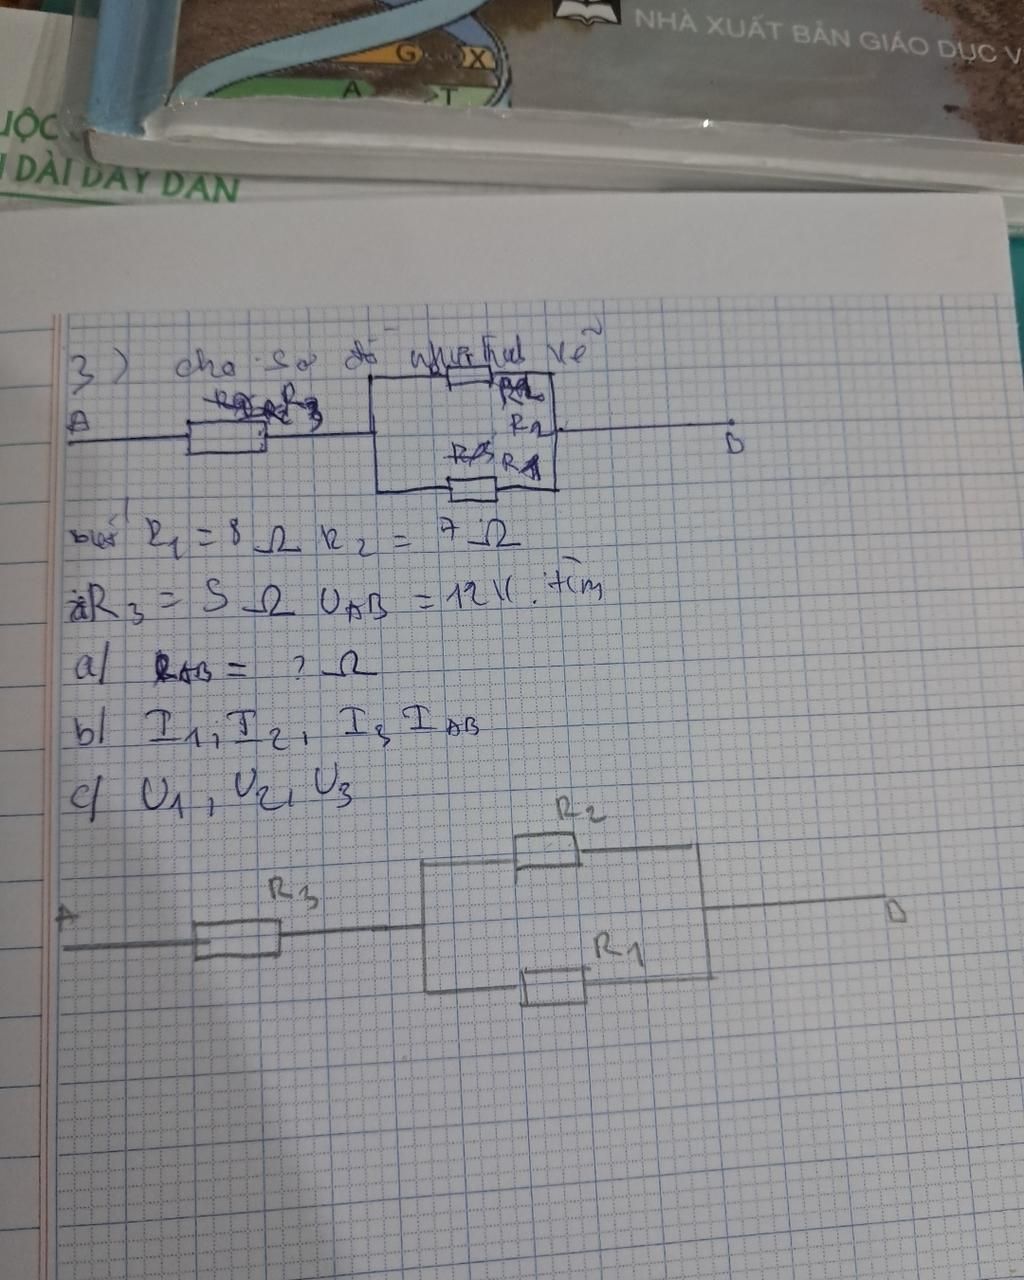 NHÀ XUẤT BẢN GIÁO DỤC V
G X
A T
UỘC
DÀI DÂY DẪN
3) cho sơ đồ như hình vẽ
A R3 R2
R2
R1 B
biết R1 = 8 Ω R2 = 7 Ω
R3 = 5 Ω UAB = 12 V. tìm
a/ RAB = ? Ω
b/ I1, I2, I3 IAB
c/ U1, U2, U3
R2
A R3 B
R1